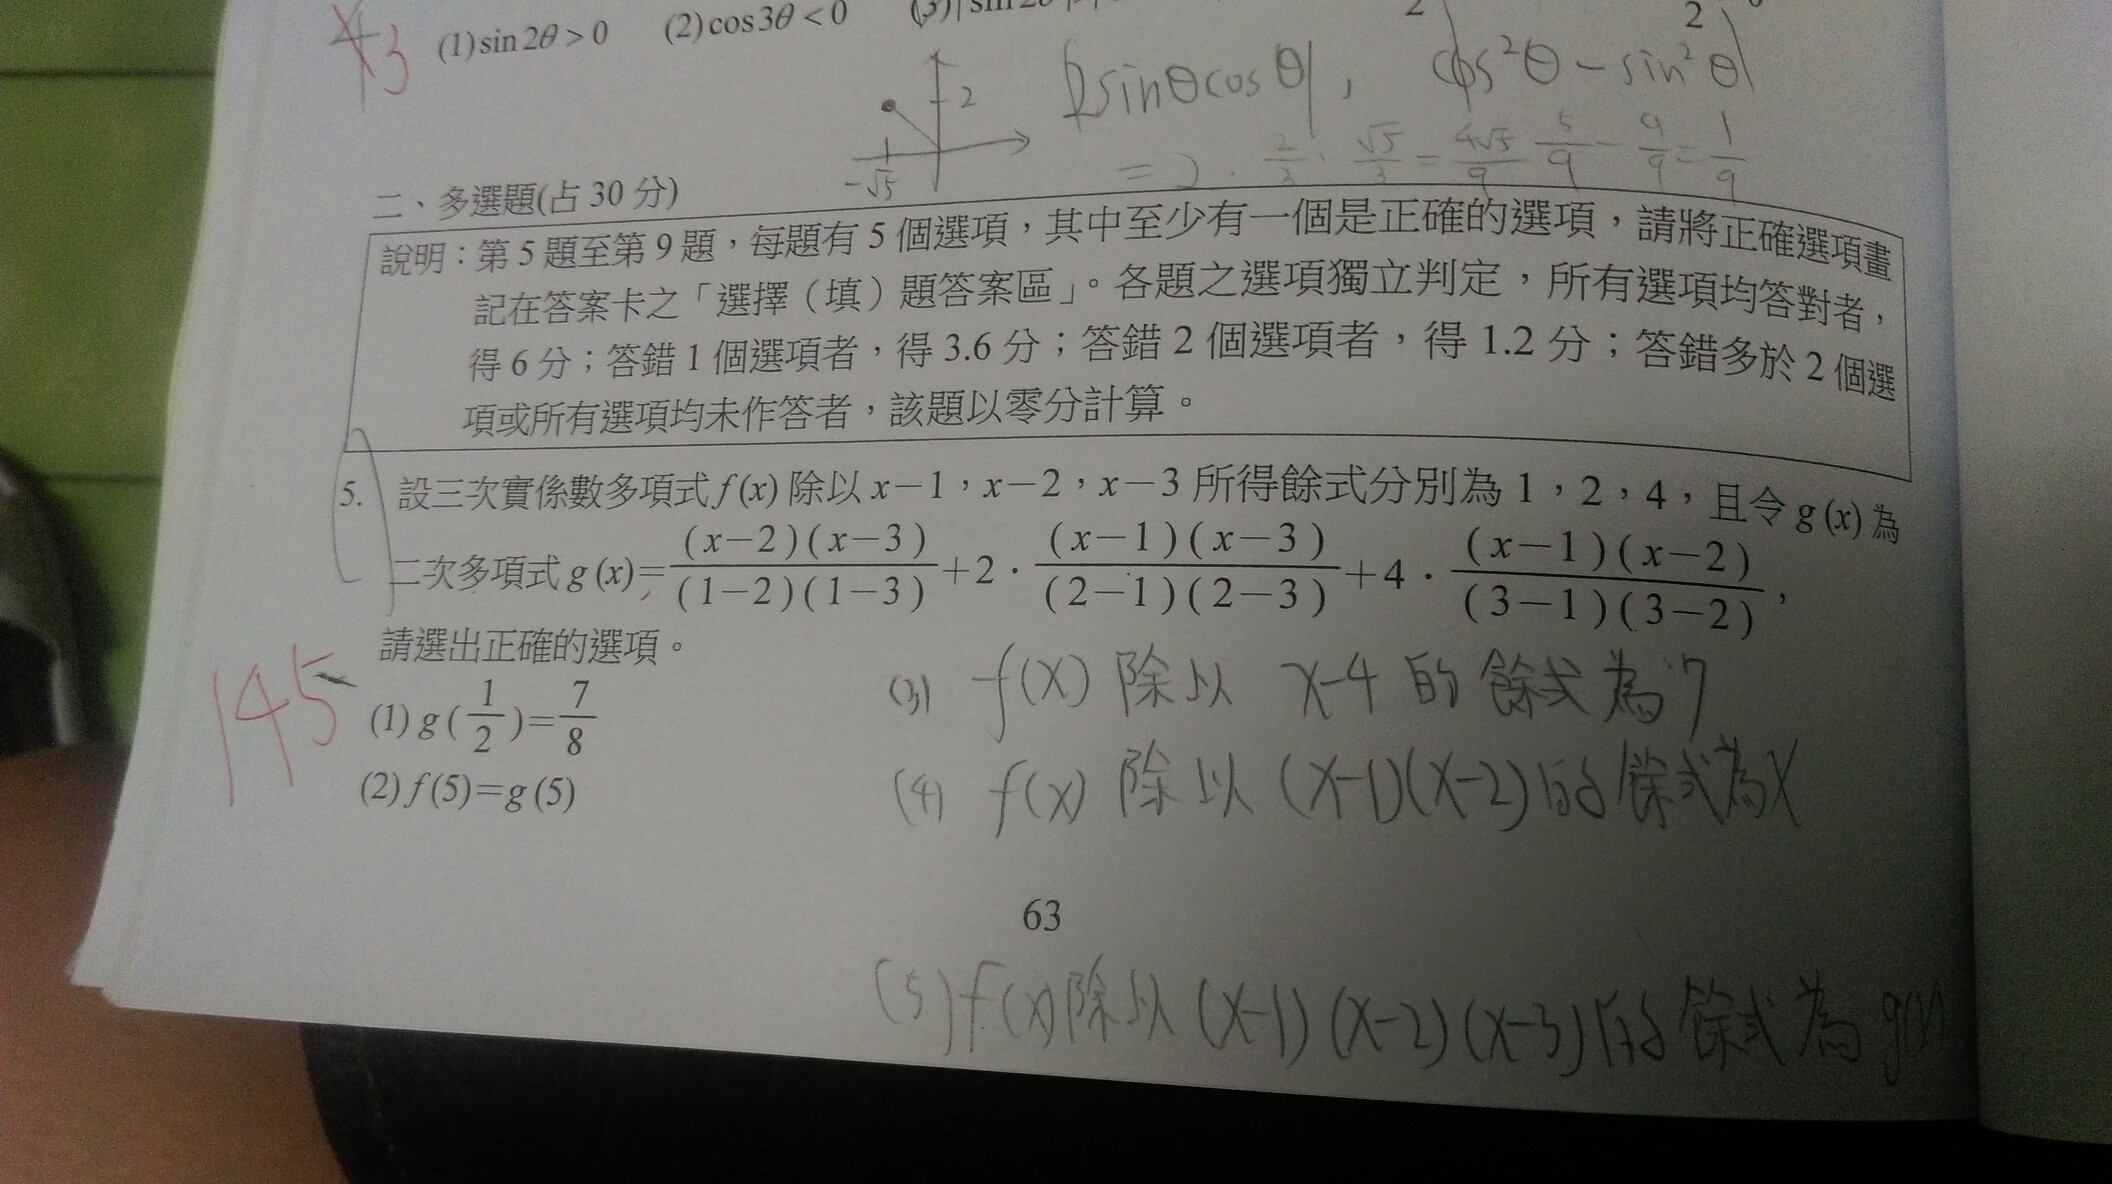 43
(1) sin 2θ > 0 (2) cos 3θ < 0 (3)
2 2
|2sinθcosθ|, cos²θ − sin²θ
2
−√5
= 2 · 2/3 · √5/3 = 4√5/9 5/9 − 4/9 = 1/9
二、多選題(占 30 分)
說明：第 5 題至第 9 題，每題有 5 個選項，其中至少有一個是正確的選項，請將正確選項畫
記在答案卡之「選擇（填）題答案區」。各題之選項獨立判定，所有選項均答對者，
得 6 分；答錯 1 個選項者，得 3.6 分；答錯 2 個選項者，得 1.2 分；答錯多於 2 個選
項或所有選項均未作答者，該題以零分計算。
5. 設三次實係數多項式 f (x) 除以 x－1，x－2，x－3 所得餘式分別為 1，2，4，且令 g (x) 為
二次多項式 g (x)= (x－2)(x－3)/(1－2)(1－3) +2 · (x－1)(x－3)/(2－1)(2－3) +4 · (x－1)(x－2)/(3－1)(3－2)，
請選出正確的選項。
145
(1) g ( 1/2 )= 7/8
(2) f (5)=g (5)
(3) f(x) 除以 x-4 的餘式為7
(4) f(x) 除以 (x-1)(x-2)的餘式為x
63
(5) f(x)除以 (x-1)(x-2)(x-3)的餘式為 g(x)